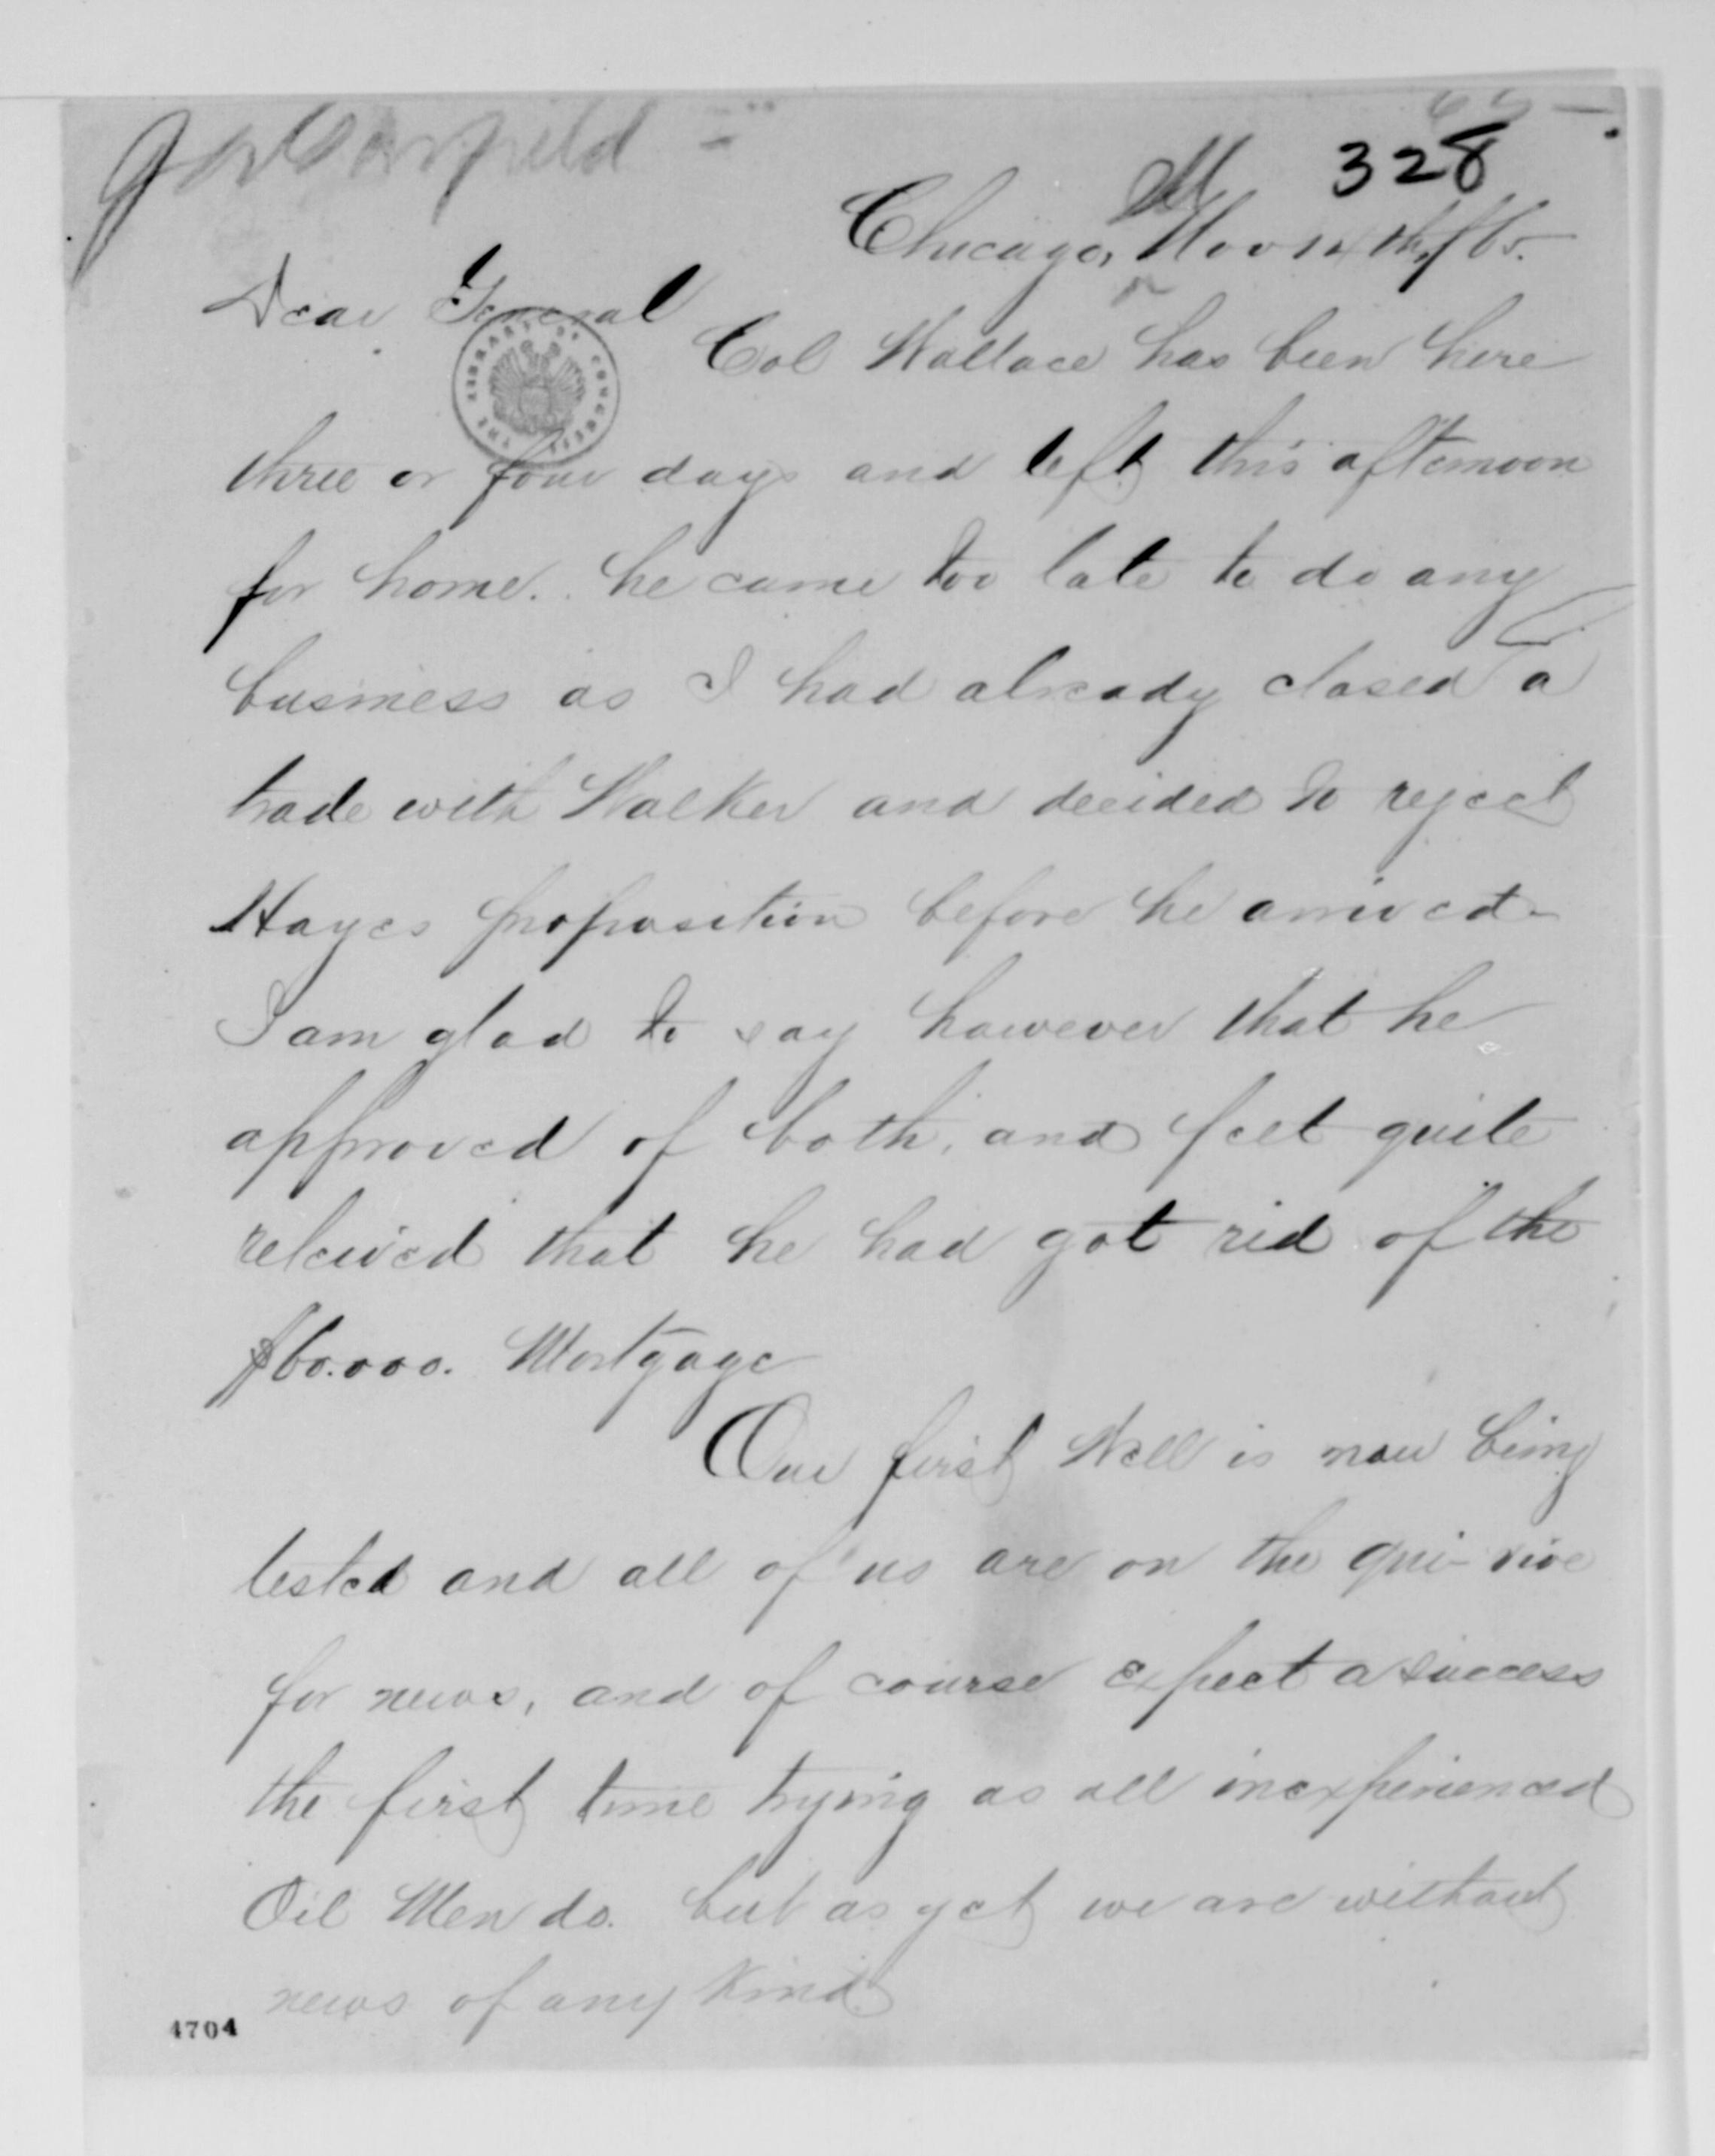 Garfield
328
Chicago, Nov 14th, /65.
Dear General
Col Wallace has been here
three or four days and left this afternoon
for home. he came too late to do any
business as I had already closed a
trade with Walker and decided to reject
Hayes proposition before he arrived-
I am glad to say however that he
approved of both, and felt quite
releived that he had got rid of the
$60.000. Mortgage
Our first Well is now being
tested and all of us are on the qui-vive
for news, and of course expect a success
the first time trying as all inexperienced
Oil Men do. but as yet we are without
news of any kind
4704